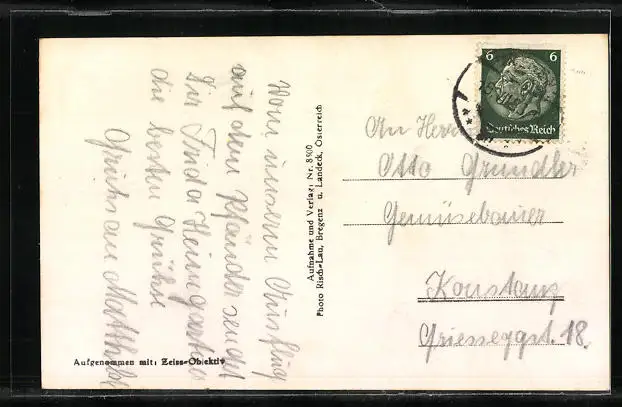 Vom unserem Ausflug
auf dem Pfänder sendet
Dir Frida Heimgartner
die besten Grüße
6 6
Deutsches Reich
Aufnahme und Verlag: Nr. 8500
Photo Risch-Lau, Bregenz u. Landeck, Österreich
An Herrn
Otto Grundler
Gemüsebauer
Konstanz
Griesseggst. 18.
Aufgenommen mit: Zeiss-Objektiv